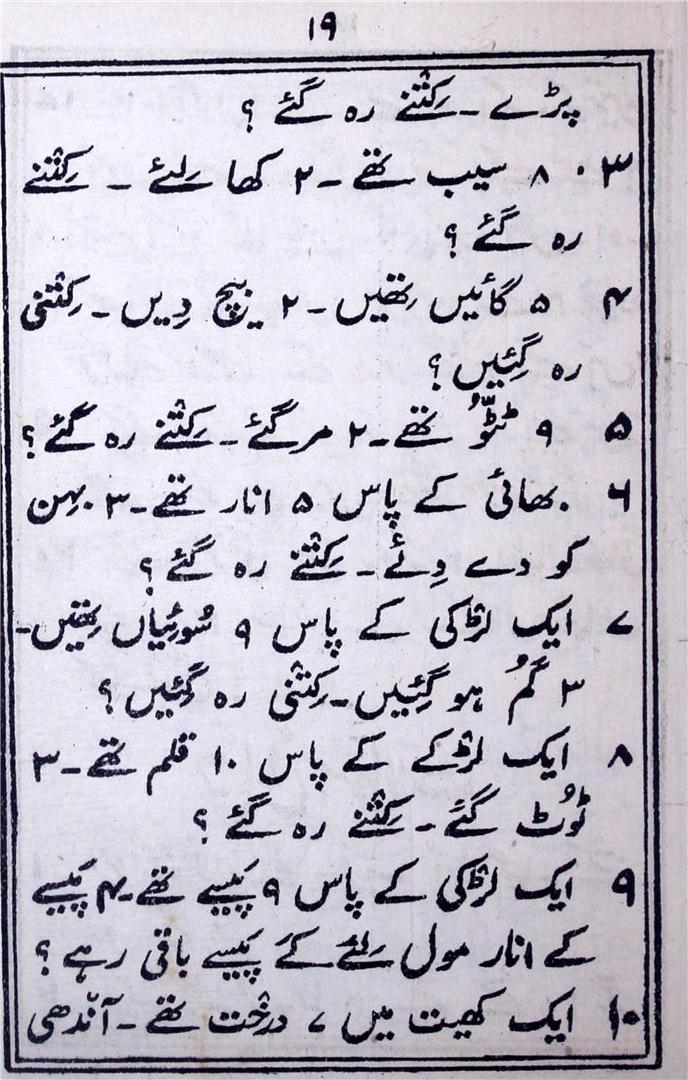 ۱۹
پڑے ۔ کِتنے رہ گئے ؟
۳۔ ۸ سیب تھے ۔ ۲ کھا لِئے ۔ کِتنے
رہ گئے ؟
۴ ۵ گائیں تھِیں ۔ ۲ بیچ دِیں ۔ کِتنی
رہ گئِیں ؟
۵ ۹ ٹٹُّو تھے ۔ ۲ مر گئے ۔ کِتنے رہ گئے ؟
۶ بھائی کے پاس ۵ انار تھے ۔ ۳ بہن
کو دے دِئے ۔ کِتنے رہ گئے ؟
۷ ایک لڑکی کے پاس ۹ سُوئِیاں تھِیں ۔
۳ گُم ہو گئِیں ۔ کِتنی رہ گئِیں ؟
۸ ایک لڑکے کے پاس ۱۰ قلم تھے ۔ ۳
ٹُوٹ گئے ۔ کِتنے رہ گئے ؟
۹ ایک لڑکی کے پاس ۹ پَیسے تھے ۔ ۴ پَیسے
کے انار مول لِئے کَے پَیسے باقی رہے ؟
۱۰ ایک کھیت میں ۷ درخت تھے ۔ آندھی